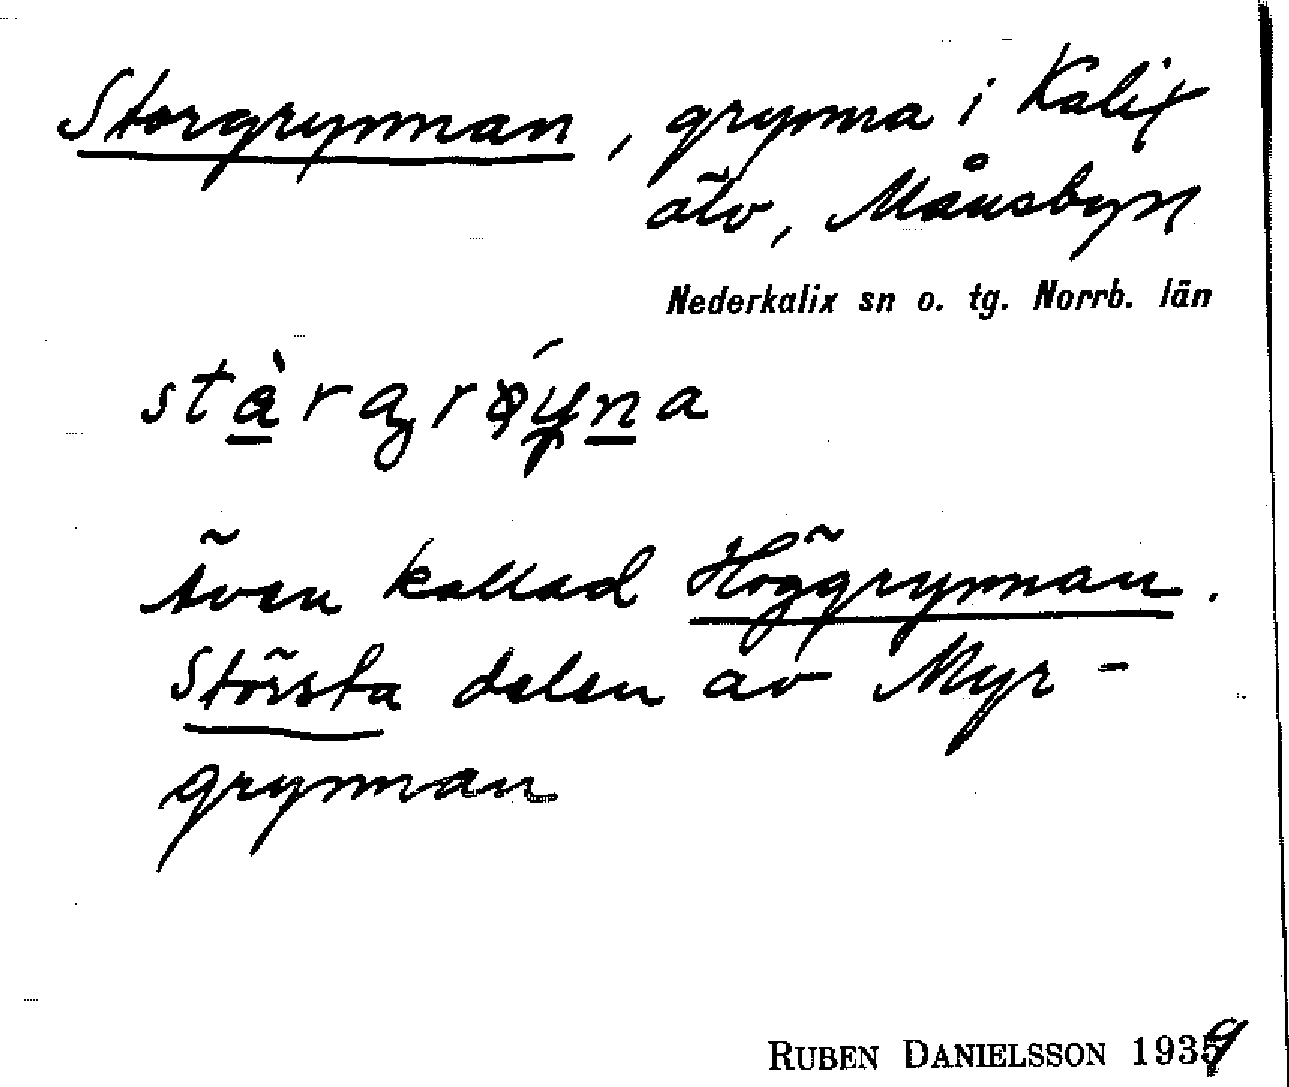 Storgrynnan, grynna i Kalix
älv, Månsbyn
Nederkalix sn o. tg. Norrb. län
Även kallad Höggrynnan.
Största delen av Myr-
grynnan
RUBEN DANIELSSON 1939